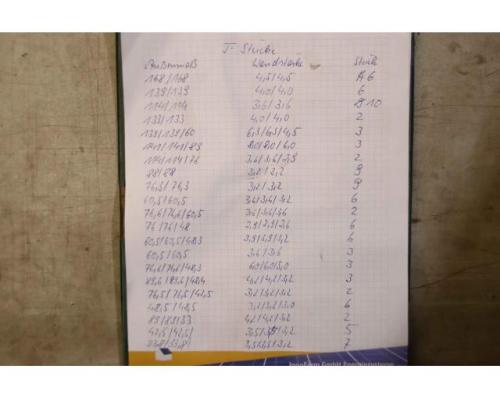 T- Stücke
Außenmaß Wandstärke Stück
168/168 4,5/4,5 6
139/139 4,0/4,0 6
114/114 3,6/3,6 10
133/133 4,0/4,0 2
139/139/60 6,3/6,3/4,5 3
141/141/89 8,0/8,0/6,0 3
114/114/76 3,6/3,6/2,9 2
88/88 3,2/3,2 9
76,3/76,3 3,2/3,2 9
60,5/60,5 3,6/3,6/3,2 6
76,6/76,6/60,5 3,6/3,6/3,6 2
76/76/48 2,9/2,9/2,6 6
60,5/60,5/48,3 3,9/3,9/3,2 6
60,5/60,5 3,6/3,6 3
76,6/76,6/48,3 3
89,6/89,6/48,4 4,2/4,2/3,2 3
76,5/76,5/42,5 3,2/3,2/3,2 2
48,5/48,5 3,2/3,2/3,0 6
89/89/33 4,2/4,2/3,2 2
42,5/42,5/ 3,5/3,5/3,2 5
33,8/33,8/ 3,5/3,5/3,2 7
GmbH Energiesysteme